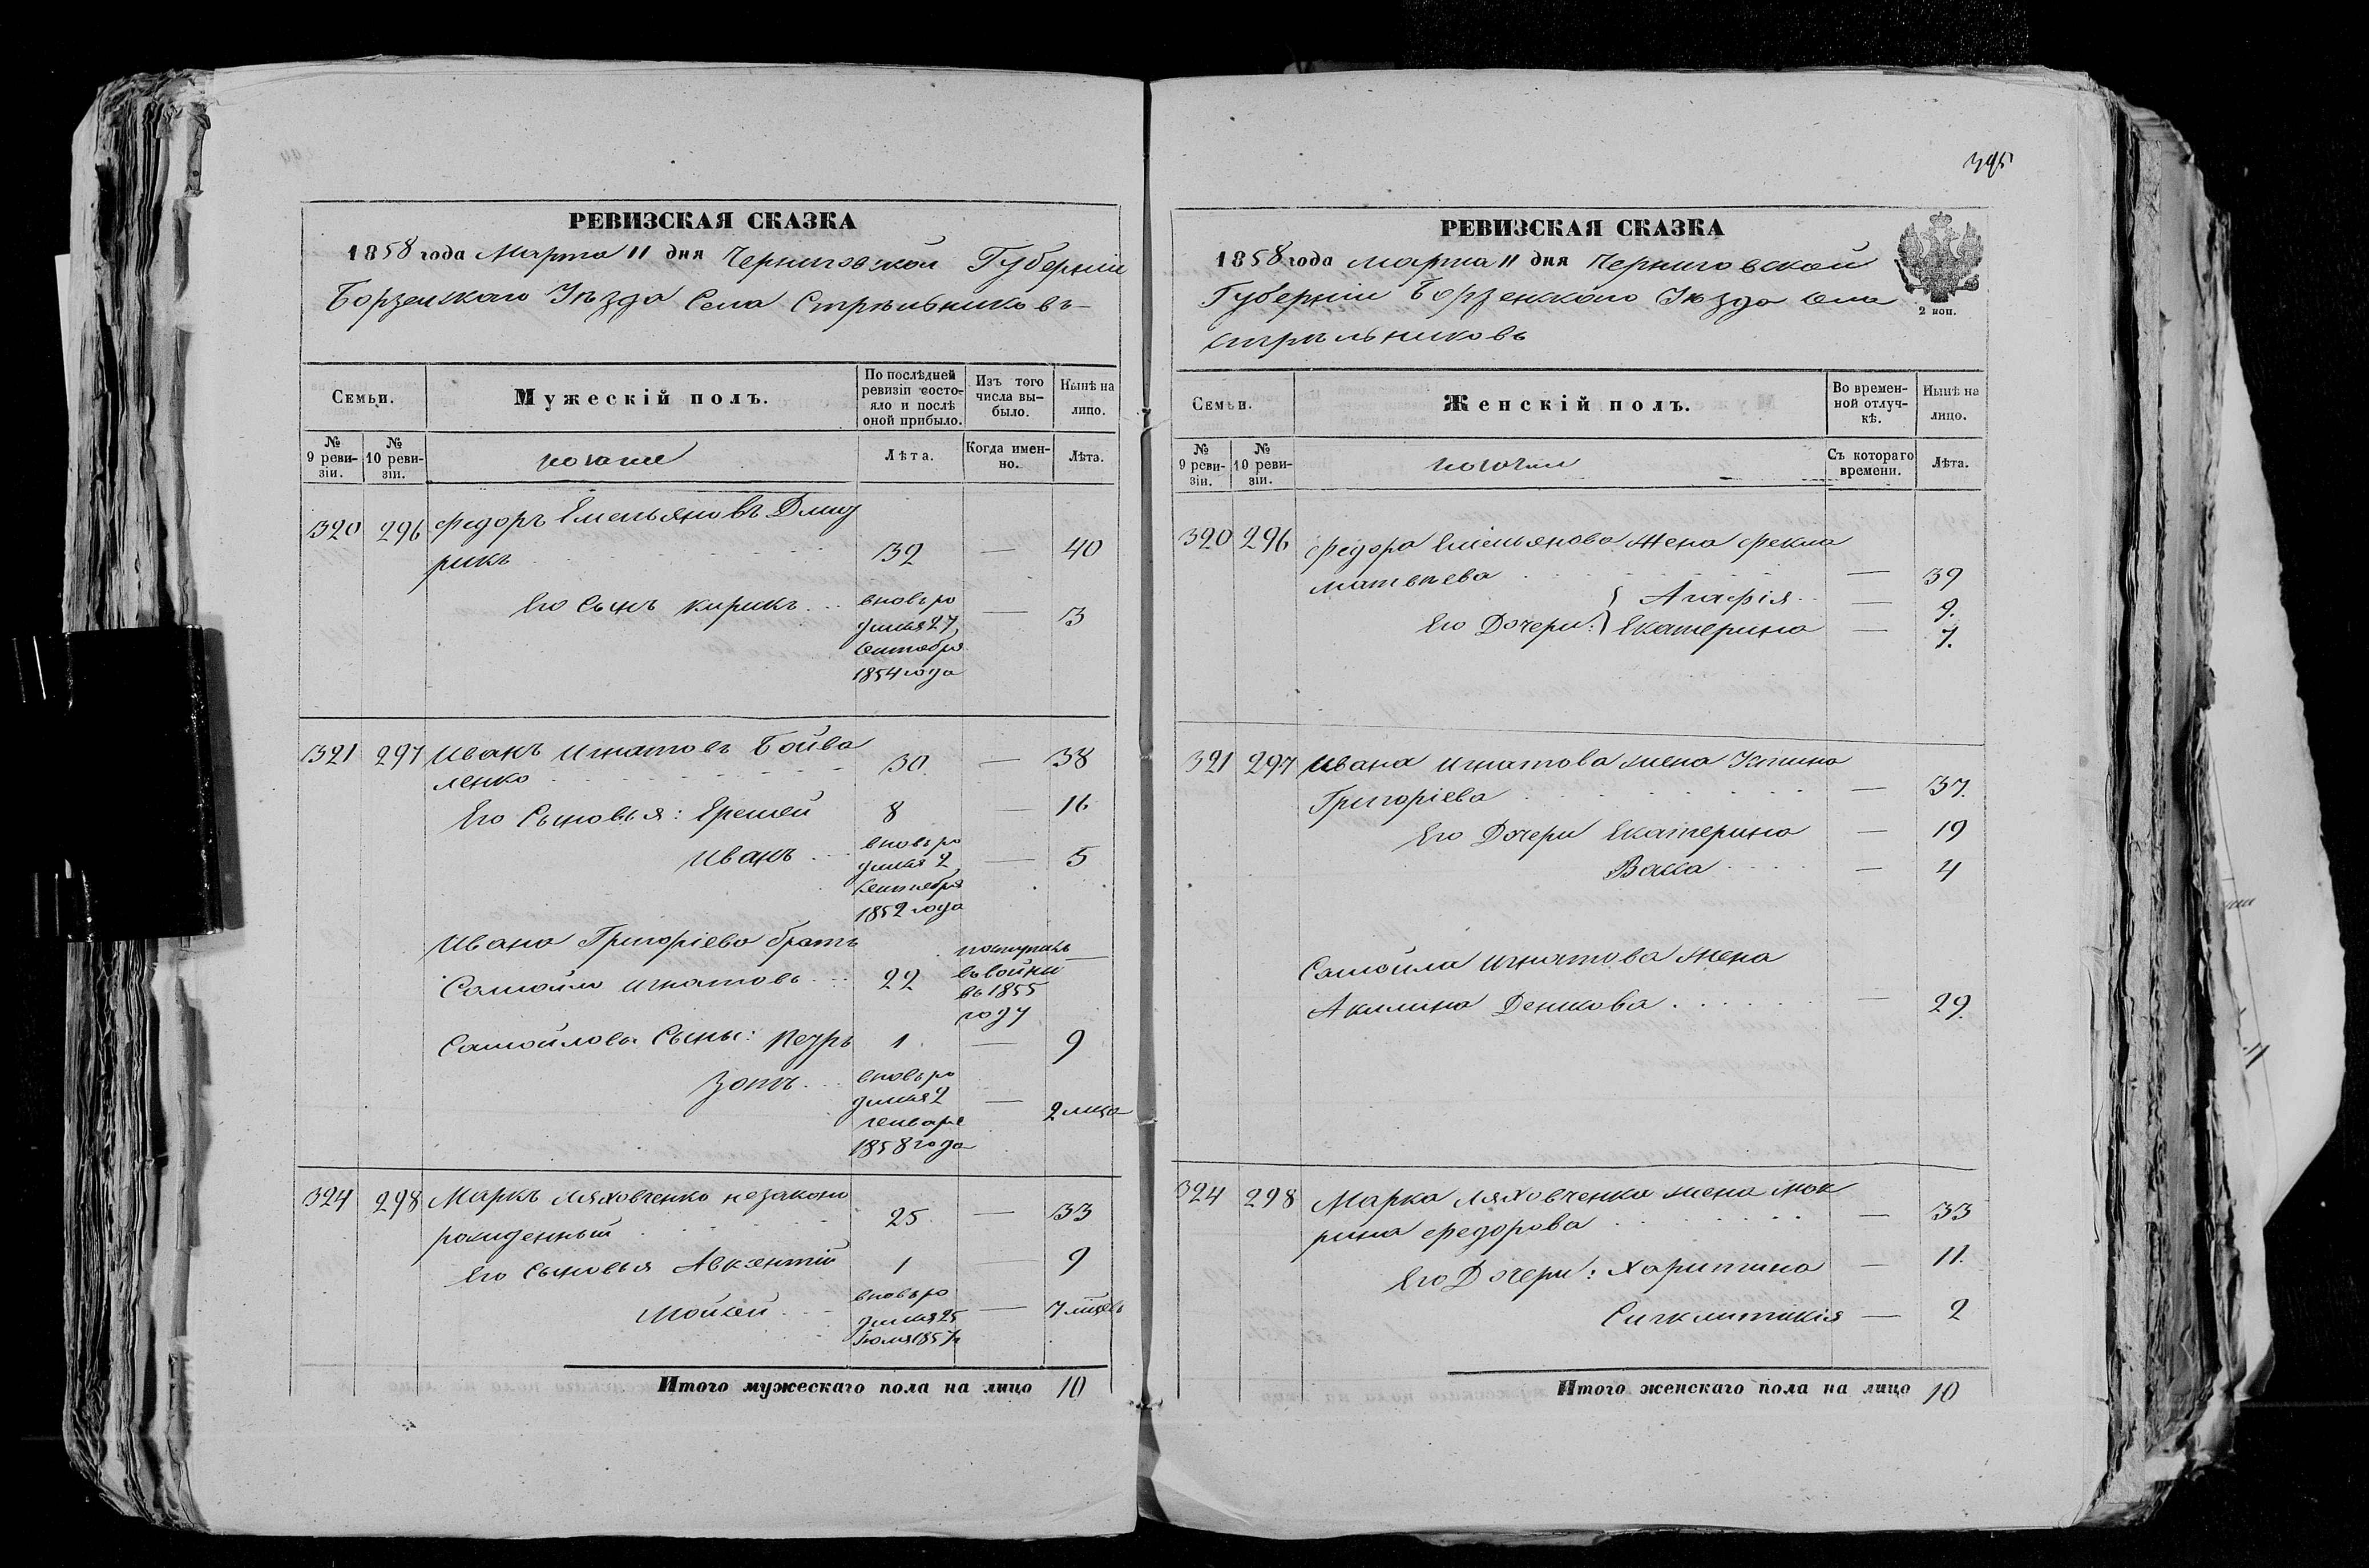 РЕВИЗСКАЯ СКАЗКА
1858 года Марта 11 дня Черниговской Губерніи
Борзенскаго Уѣзда Села Стрѣльниковъ
Семьи.
Мужескій полъ.
По послѣдней ревизіи состояло и послѣ оной прибыло.
Изъ того числа выбыло.
Нынѣ на лицо.
№ 9 ревизіи.
№ 10 ревизіи.
Лѣта.
Когда именно.
Лѣта.
320 296 Федоръ Емельяновъ Дмит
рикъ 32 — 40
Его Сынъ Кирикъ вновь ро — 3
дился 27
Сентября
1854 года
321 297 Иванъ Игнатовъ Бойва
ленко 30 — 38
Его Сыновья: Еремей 8 — 16
Иванъ вновь ро — 5
дился 2
Сентября
1852 года
Ивана Григоріева братъ
Самойло Игнатовъ 22
въ 1855
году
Самойловы Сыны: Петръ 1 — 9
Зотъ вновь ро
дился 2 — 2 мѣсца
генваря
1858 года
324 298 Маркъ Ляховченко незаконо
рожденный 25 — 33
Его Сыновья Авксентій 1 — 9
Мойсей вновь ро — 7 мѣсцовъ
дился 25
Іюля 1857
Итого мужескаго пола на лицо 10
395
РЕВИЗСКАЯ СКАЗКА
1858 года марта 11 дня Черниговской
Губерніи Борзенскаго Уѣзда Села
Стрѣльниковъ
2 коп.
Семьи.
Женскій полъ.
Во временной отлучкѣ.
Нынѣ на лицо.
№ 9 ревизіи.
№ 10 ревизіи.
Съ котораго времени.
Лѣта.
320 296 Федора Емельянова Жена Фекла
Матвѣева — 39
Его Дочери: Агафія — 9.
Екатерина — 7.
321 297 Ивана Игнатова жена Устина
Григоріева — 37.
Его Дочери Екатерина — 19
Васса — 4
Самойла Игнатова Жена
Акилина Денисова — 29.
324 298 Марка Ляховченка жена Мок
рина Федорова — 33
Его Дочери: Харитина — 11.
Сигклитикія — 2
Итого женскаго пола на лицо 10